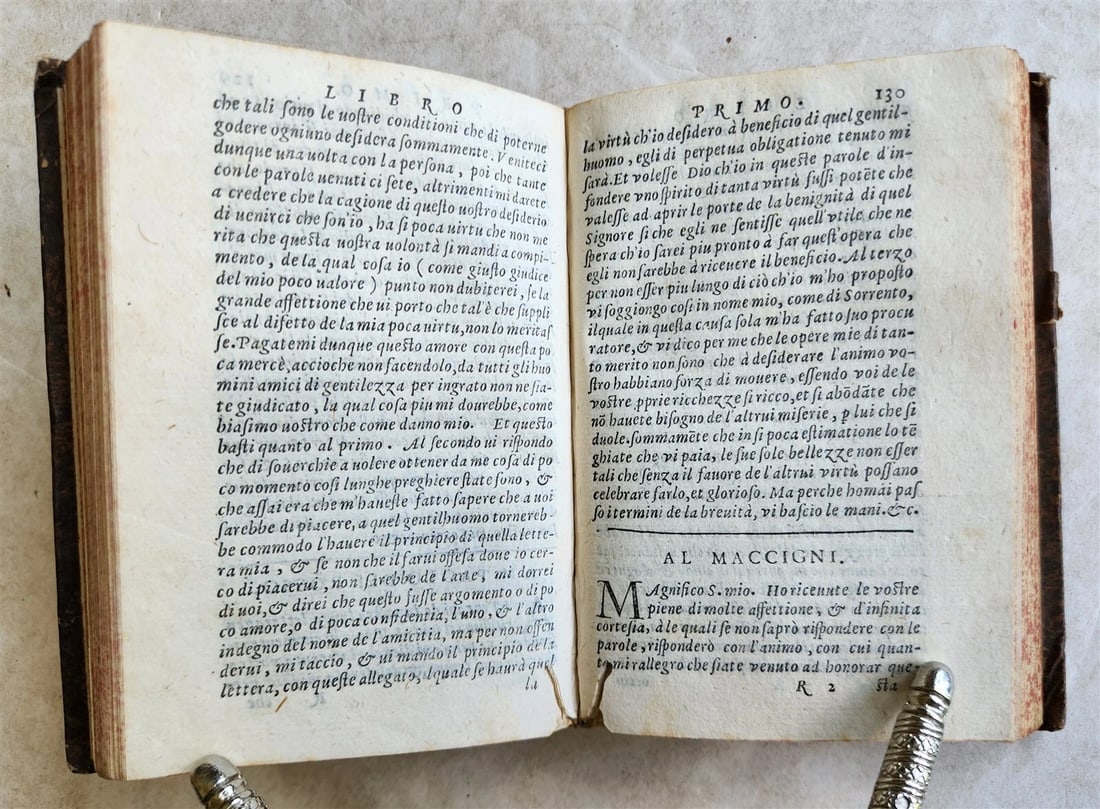 LIBRO
che tali ſono le uoſtre conditioni che di poterne
godere ogniuno deſidera ſommamente. Veniteci
dunque una uolta con la perſona, poi che tante
con le parole uenuti ci ſete, altrimenti mi darete
a credere che la cagione di queſto uoſtro deſiderio
di uenirci che ſon'io, ha ſi poca uirtu che non me
rita che queſta uoſtra uolontà ſi mandi a compi-
mento, de la qual coſa io (come giuſto giudice
del mio poco ualore) punto non dubiterei, ſe la
grande affettione che ui porto che tal'è che ſuppli
ſce al difetto de la mia poca uirtu, non lo meritaſ
ſe. Pagatemi dunque queſto amore con queſta po
ca mercè, accioche non facendolo, da tutti gli huo
mini amici di gentilezza per ingrato non ne ſia-
te giudicato, la qual coſa piu mi dourebbe, come
biaſimo uoſtro che come danno mio. Et queſto
baſti quanto al primo. Al ſecondo ui riſpondo
che di ſouerchie a uolere ottener da me coſa di po
co momento coſi lunghe preghiere ſtate ſono, &
che aſſai era che m'haueſte fatto ſapere che a uoi
ſarebbe di piacere, a quel gentilhuomo tornereb-
be commodo l'hauere il principio di quella lette-
ra mia, & ſe non che il farui offeſa doue io cer-
co di piacerui, non ſarebbe de l'arte, mi dorrei
di uoi, & direi che queſto fuſſe argomento o di po
co amore, o di poca confidentia, l'uno, & l'altro
indegno del nome de l'amicitia, ma per non offen
derui, mi taccio, & ui mando il principio de la
lettera, con queſte allegato, il quale ſe haurà quel
la
PRIMO. 130
la virtù ch'io deſidero à beneficio di quel gentil-
huomo, egli di perpetua obligatione tenuto mi
ſarà. Et voleſſe Dio ch'io in queſte parole d'in-
fondere vno ſpirito di tanta virtù fuſſi potēte che
valeſſe ad aprir le porte de la benignità di quel
Signore ſi che egli ne ſentiſſe quell'vtile che ne
ſpera ch'io ſarei piu pronto à far queſt'opera che
egli non ſarebbe à riceuere il beneficio. Al terzo
per non eſſer piu lungo di ciò ch'io m'ho propoſto
vi ſoggiongo coſi in nome mio, come di Sorrento,
il quale in queſta cauſa ſola m'ha fatto ſuo procu
ratore, & vi dico per me che le opere mie di tan-
to merito non ſono che à deſiderare l'animo vo-
ſtro habbiano forza di mouere, eſſendo voi de le
voſtre ꝓprie ricchezze ſi ricco, et ſi abōdāte che
nō hauete biſogno de l'altrui miſerie, ꝑ lui che ſi
duole ſommamēte che in ſi poca eſtimatione lo tē
ghiate che vi paia, le ſue ſole bellezze non eſſer
tali che ſenza il fauore de l'altrui virtù poſſano
celebrare farlo, et glorioſo. Ma perche homai paſ
ſo i termini de la breuità, vi baſcio le mani. &c.
AL MACCIGNI.
MAgnifico S. mio. Ho riceuute le voſtre
piene di molte affettione, & d'infinita
corteſia, à le quali ſe non ſaprò riſpondere con le
parole, riſponderò con l'animo, con cui quan-
to mi rallegro che ſiate venuto ad honorar que-
R 2 ſta